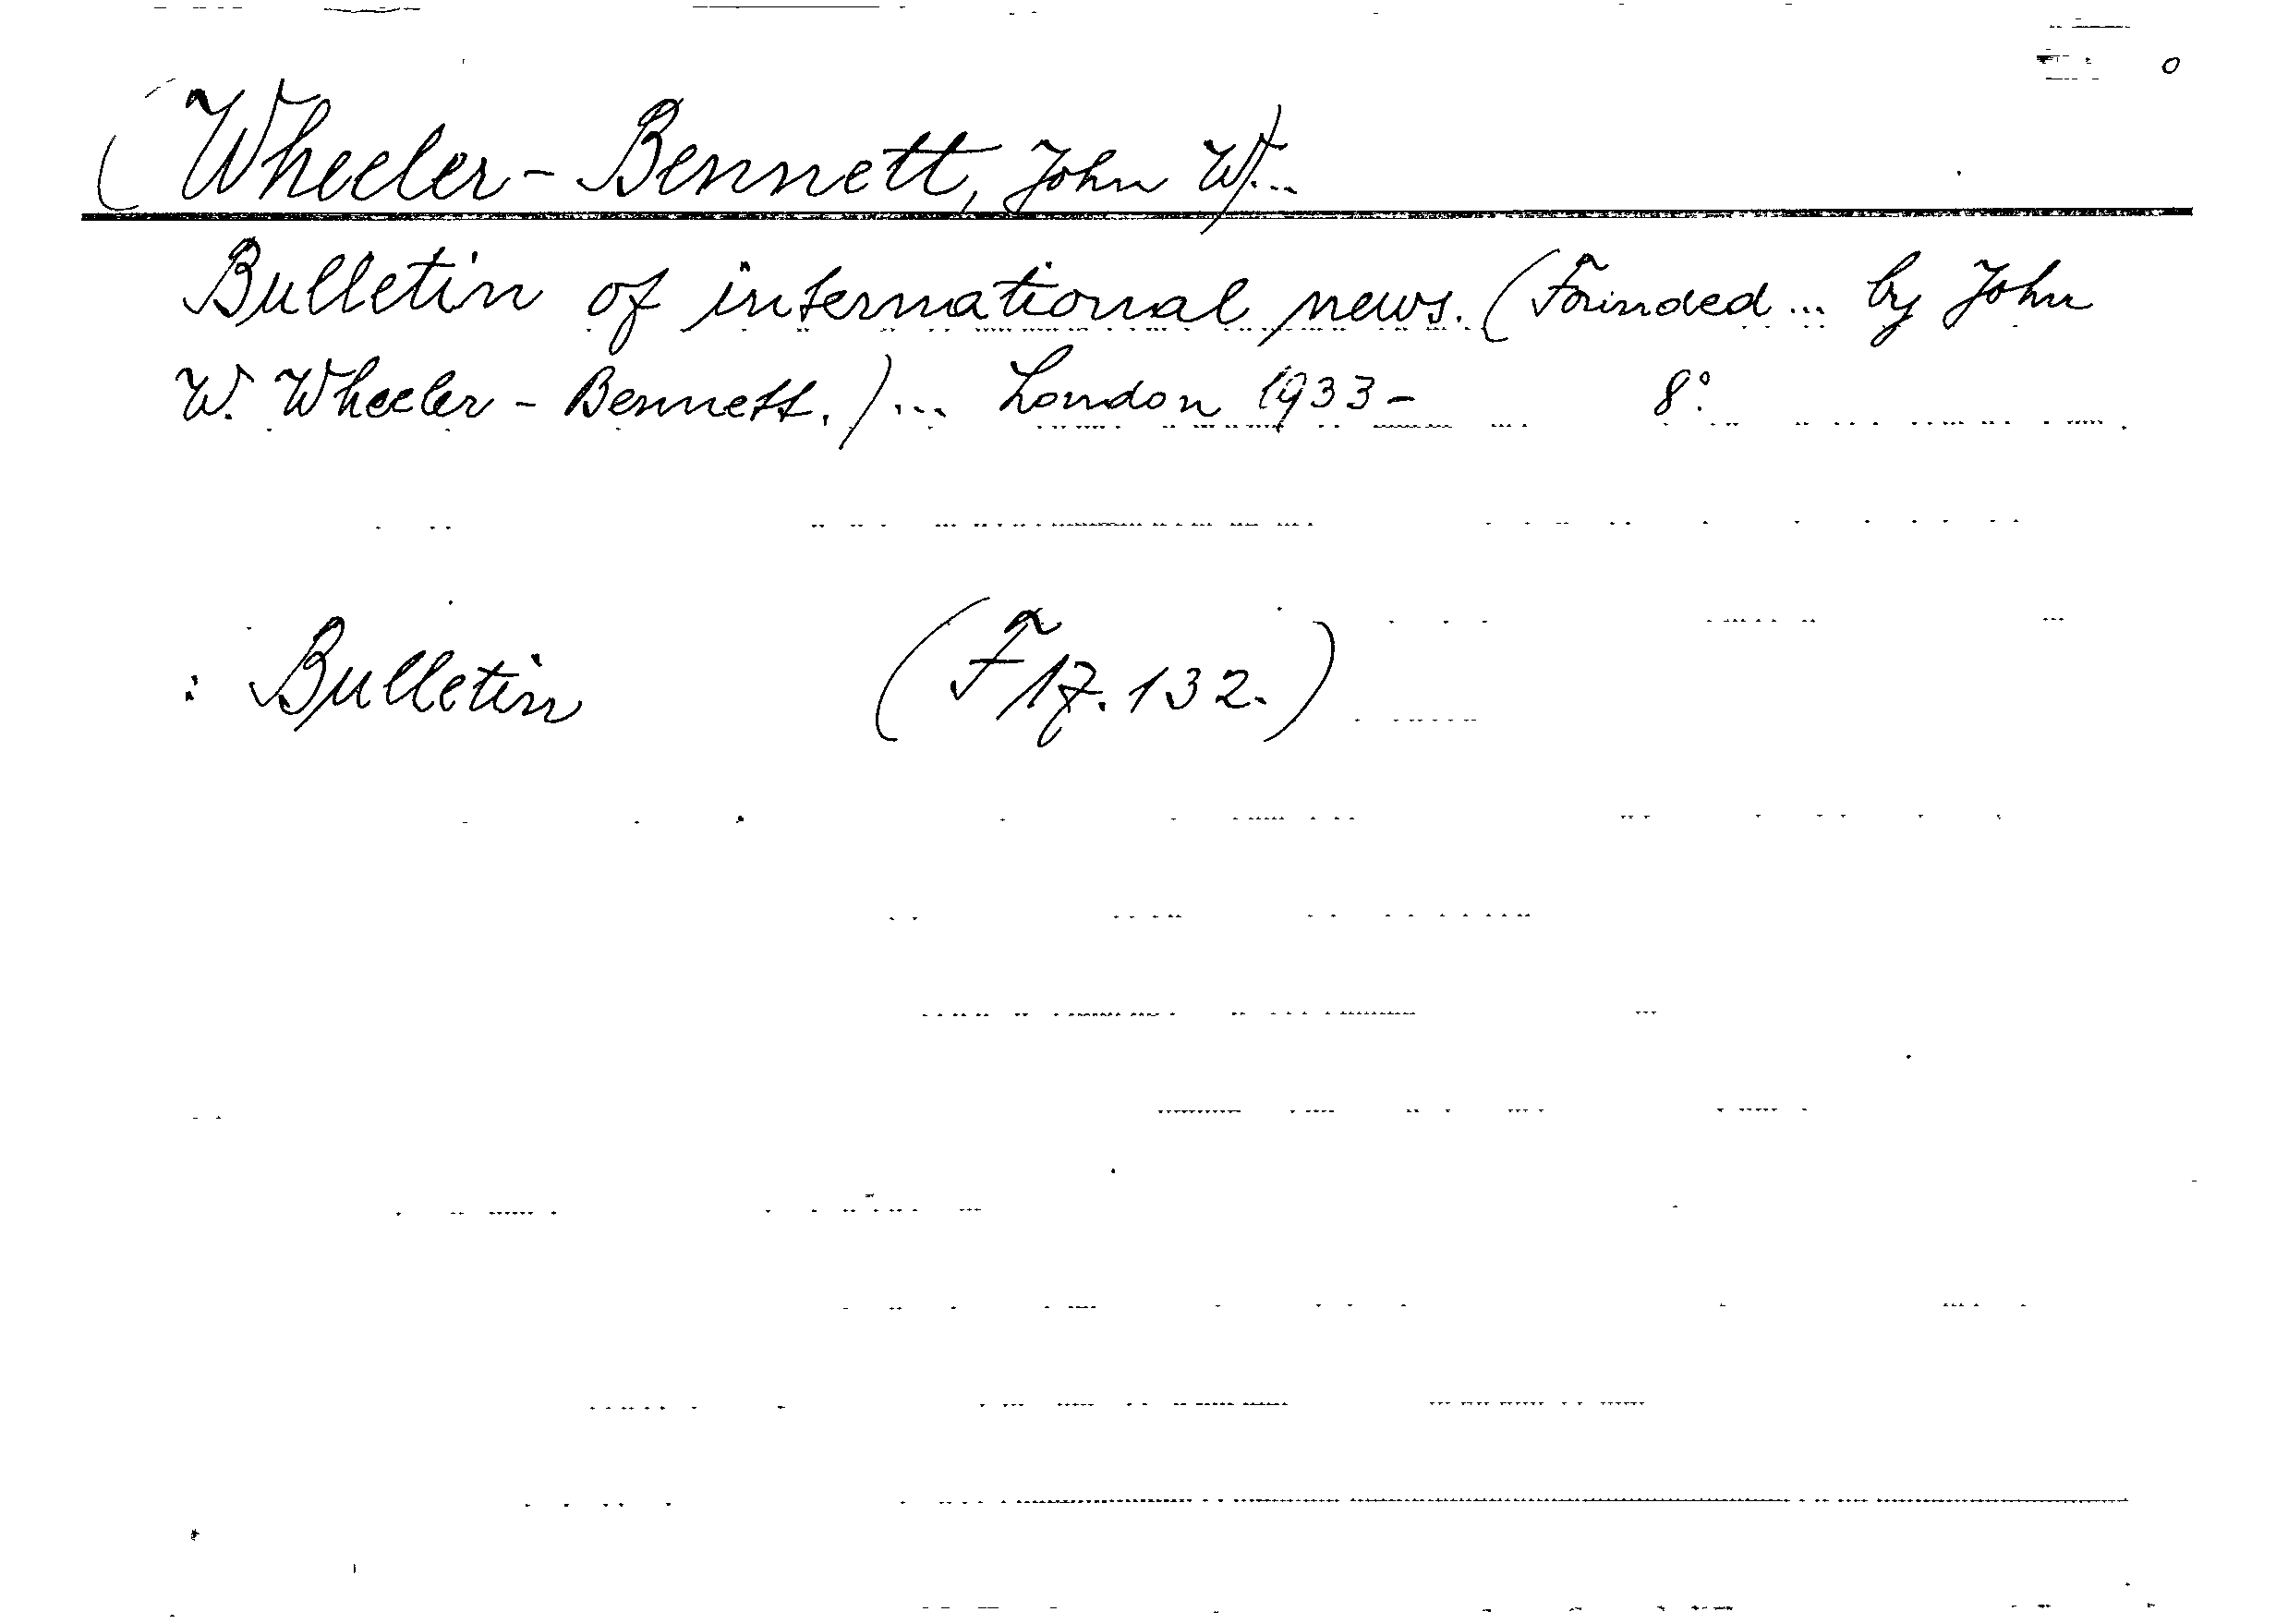 (Wheeler-Bennett, John W)...
Bulletin of international news. (Founded ... by John
W. Wheeler-Bennett.) ... London 1933- 8°.
: Bulletin (F 17.132.)